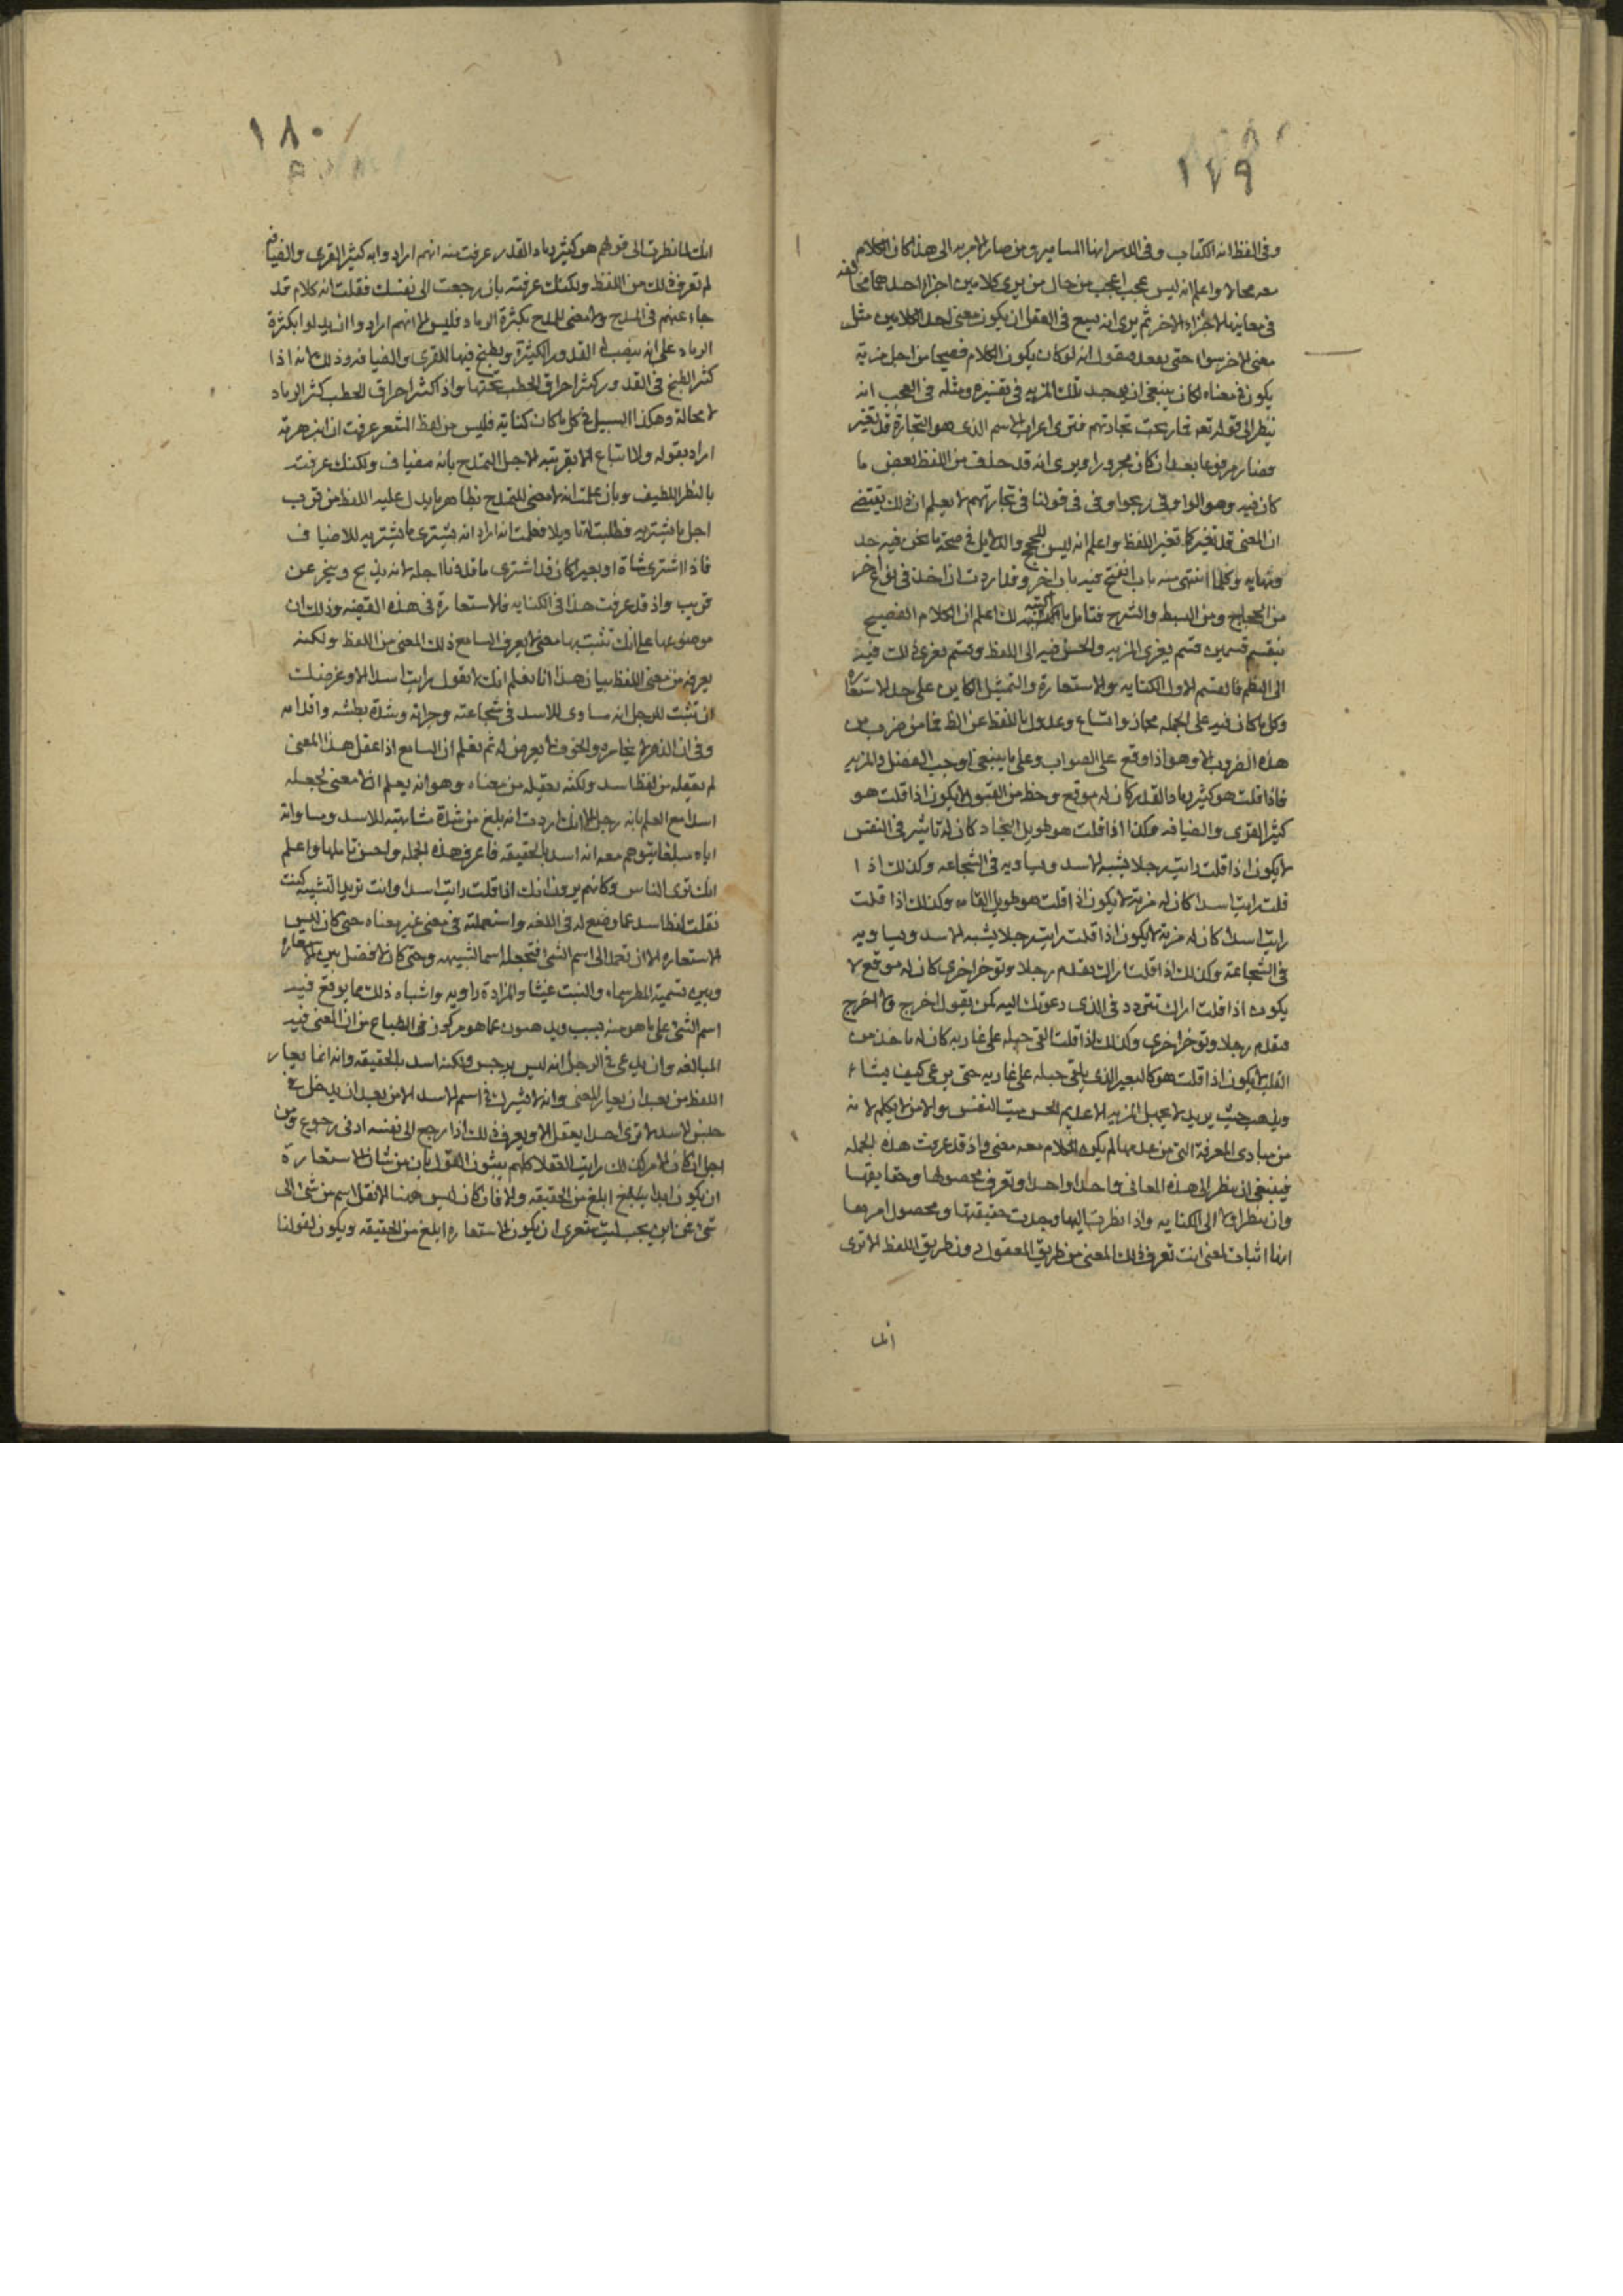 ١٧٩
وفي الفظ انه الكتاب وفي الدسر انها المسامير ومن صار الامر به الى هذا كان الكلام
معه محالا واعلم انه ليس عجب اعجب من حال من يرى كلامين اجزا احدهما مخالفه
في معانيها لاجزاء الاخر ثم يرى انه يسع في العقل ان يكون معنى احد الكلامين مثل
معنى الاخر سوا حتى يقعد فيقول انه لو كان يكون الكلام فصيحا من اجل مزية
يكون في معناه لكان ينبغي ان يوجد تلك المزيه في تفسيره ومثله في العجب انه
ينظر الى قوله تعه فما ربحت تجارتهم فترى اعراب الاسم الذي هو التجارة قد تغير
فصار مرفوعا بعد ان كان مجرورا ويرى انه قد حذف من اللفظ بعض ما
كان فيه وهو الواو في ربحوا وفي في قولنا في تجارتهم لا يعلم ان ذلك يقتضي
ان المعنى قد تغير كما تغير اللفظ واعلم انه ليس للحجج والدلايل في صحة ما نحن فيه حد
ونهايه وكلما انتهى منه باب انفتح فيه باب اخر وقد اردت ان اخذ في نوع اخر
من الحجاج ومن البسط والشرح فتامل ما اكتبه لك اعلم ان الكلام الفصيح
ينقسم قسمين قسم يعزى المزيه والحسن فيه الى اللفظ وقسم يعزى ذلك فيه
الى النظم فالقسم الاول الكنايه والاستعارة والتمثيل الكاين على حد الاستعاره
وكل ما كان فيه على الجمله مجاز واتساع وعدول باللفظ عن الظ فما من ضرب من
هذه الضروب الا وهو اذا وقع على الصواب وعلى ما ينبغي اوجب الفضل والمزيه
فاذا قلت هو كثير رماد القدر كان له موقع وحظ من القبول لا يكون اذا قلت هو
كثير القرى والضيافه وهكذا اذا قلت هو طويل النجاد كان له تاثير في النفس
لا يكون اذا قلت رايت رجلا يشبه الاسد ويساويه في الشجاعه وكذلك اذا
قلت رايت اسدا كان له مزية لا يكون اذا قلت هو طويل القامه وكذلك اذا قلت
رايت اسدا كان له مزية لا يكون اذا قلت رايت رجلا يشبه الاسد ويساويه
في الشجاعة وكذلك اذا قلت اراك تقدم رجلا وتوخر اخرى كان له موقع لا
يكون اذا قلت اراك تتردد في الذي دعوتك اليه كمن يقول اخرج ولا اخرج
فيقدم رجلا ويوخر اخرى وكذلك اذا قلت القى حبله على غاربه كان له ماخذ من
القلب لا يكون اذا قلت هو كالبعير الذي يلقى حبله على غاربه حتى يرعى كيف يشاء
ويذهب حيث يريد لا يجهل المزيه الا عديم الحس ميت النفس والا من لا يكلم لانه
من مبادى المعرفة التي من عدمها لم يكن للكلام معه معنى واذ قد عرفت هذه الجمله
فينبغي ان ينظر الى هذه المعاني واحدا واحدا وتعرف محصولها وحقايقها
وان ينظر اولا الى الكنايه واذا نظرت اليها وجدت حقيقتها ومحصول امرها
انها اثبات لمعنى انت تعرف ذلك المعنى من طريق المعقول دون طريق اللفظ الا ترى
انك
١٨٠
انك لما نظرت الى قولهم هو كثير رماد القدر عرفت منه انهم ارادوا به كثير القرى والضيافه
لم تعرف ذلك من اللفظ ولكنك عرفته بان رجعت الى نفسك فقلت انه كلام قد
جاء عنهم في المدح ولا معنى للمدح بكثرة الرماد فليس الا انهم ارادوا ان يدلوا بكثرة
الرماد على انه ينصب له القدور الكثيرة ويطبخ فيها للقرى والضيافه وذلك لانه اذا
كثر الطبخ في القدور كثر احراق الحطب تحتها واذا كثر احراق الحطب كثر الرماد
لا محالة وهكذا السبيل في كل ما كان كناية فليس من لفظ الشعر عرفت ان ابن هرمة
اراد بقوله ولا ابتاع الا قريبة الاجل التمدح بانه مضياف ولكنك عرفت
بالنظر اللطيف وبان علمت انه لا معنى للتمدح بظاهر ما يدل عليه اللفظ من قرب
اجل ما يشتريه فطلبت له تاويلا فعلمت انه اراد انه يشترى ما يشتريه للاضياف
فاذا اشترى شاة او بعيرا كان قد اشترى ما قد دنا اجله لانه يذبح وينحر عن
قريب واذ قد عرفت هذا في الكنايه فالاستعارة في هذه القضيه وذلك ان
موضوعها على انك تثبت بها معنى لا يعرف السامع ذلك المعنى من اللفظ ولكنه
يعرفه من معنى اللفظ بيان هذا انا نعلم انك لا تقول رايت اسدا الا وغرضك
ان تثبت للرجل انه مساوى للاسد في شجاعته وجراته وشدة بطشه واقدامه
وفي ان الذعر لا يخامره والخوف لا يعرض له ثم تعلم ان السامع اذا عقل هذا المعنى
لم يعقله من لفظ اسد ولكنه يعقله من معناه وهو انه يعلم انه لا معنى لجعله
اسدا مع العلم بانه رجل الا انك اردت انه بلغ من شدة مشابهته للاسد ومساواته
اياه مبلغا يتوهم معه انه اسد بالحقيقه فاعرف هذه الجمله واحسن تاملها واعلم
انك ترى الناس وكانهم يرون انك اذا قلت رايت اسدا وانت تريد التشبيه كنت
نقلت لفظ اسد عما وضع له في اللغه واستعملته في معنى غير معناه حتى كان ليس
الاستعاره الا ان تعمد الى اسم الشئ فتجعله اسما لشبيهه وحتى كان لا فضل بين الاستعاره
وبين تسمية المطر سماء والنبت غيثا والمزادة راويه واشباه ذلك مما يوقع فيه
اسم الشئ على ما هو منه بسبب ويذهبون عما هو مركوز في الطباع من ان المعنى فيه
المبالغه وان يدعى في الرجل انه ليس برجل ولكنه اسد بالحقيقه وانه انما يعار
اللفظ من بعد ان يعار المعنى وانه لا يشرك في اسم الاسد الا من بعد ان يدخل في
جنس الاسد لا ترى احدا يعقل الا ويعرف ذلك اذا رجع الى نفسه ادنى رجوع ومن
اجل ان كان الامر كذلك رايت العقلا كلهم يثبتون القول بان من شان الاستعارة
ان يكون ابدا ابلغ من الحقيقه والا فان كان ليس ههنا الا نقل اسم من شئ الى
شئ فمن اين يجب ليت شعرى ان يكون الاستعاره ابلغ من الحقيقه ويكون لقولنا